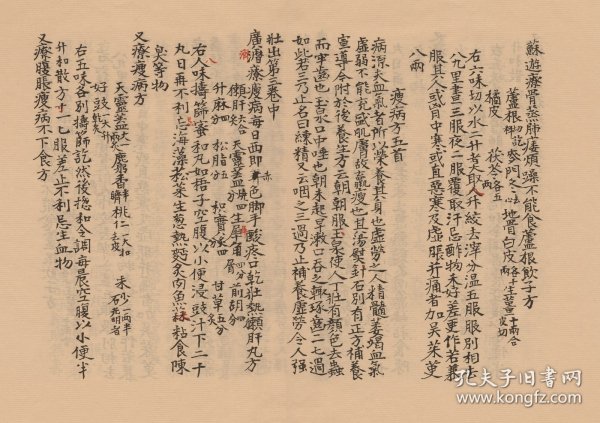 蘇遊療骨蒸肺痿煩躁不能食蘆根飲子方
蘆根切訖 麥門冬去心 地骨白皮各十兩 生薑十兩合皮切
橘皮 茯苓各五兩
右六味切以水二升煮取八升絞去滓分温五服服別相去
八九里晝三服夜二服覆取汗忌酢物未好差更作若兼
服其人或胸中寒或直惡寒及虚脹并痛者加吴茱萸
八兩
瘦病方五首
病源夫血氣者所以榮養其身也虚勞之人精髓萎竭血氣
虚弱不能充盛肌膚故羸瘦也其湯熨針石別有正方補養
宣導今附於後養生方云朝朝服玉泉使人丁壯有顔色去蟲
而牢齒也玉泉口中唾也朝未起早漱口吞之輒琢齒二七過
如此者三乃止名曰練精又云咽之三過乃止補養虚勞令人强
壯出第三卷中
廣濟療瘦病每日西即赤色脚手酸疼口乾壯熱獺肝丸方
獺肝六分 天靈蓋四分燒 生犀角四分屑 前胡四分
升麻四分 松脂五分 甘草五分
右八味擣篩蜜和丸如梧子空腹以小便浸豉汁下二十
丸日再不利忌海藻菘菜生葱熱麫炙肉魚蒜粘食陳
臭等物
又療瘦病方
天靈蓋大一兩 麝香半臍 桃仁一大合去皮 朱砂一兩半光明者
好豉一大升
右五味各別擣篩訖然後揔和令調每晨空腹以小便半
升和散方寸一匕服差止不利忌生血物
又療腹脹瘦病不下食方
孔夫子旧书网
www.kongfz.com